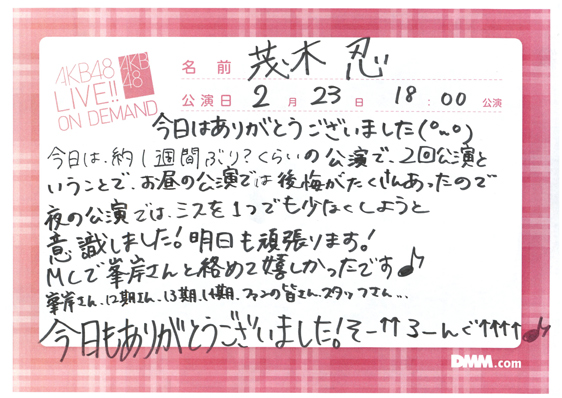 AKB48
LIVE!!
ON DEMAND
AKB
48
名前 茂木忍
公演日 2月23日 18:00公演
今日はありがとうございました(°ω°)
今日は、約1週間ぶり?くらいの公演で、2回公演と
いうことで、お昼の公演では後悔がたくさんあったので
夜の公演では、ミスを1つでも少なくしようと
意識しました!明日も頑張ります!
MCで峯岸さんと絡めて嬉しかったです♪
峯岸さん、12期さん、13期、14期、ファンの皆さん、スタッフさん...
今日もありがとうございました!そー↑↑ろーんぐ↑↑↑↑♪
DMM.com